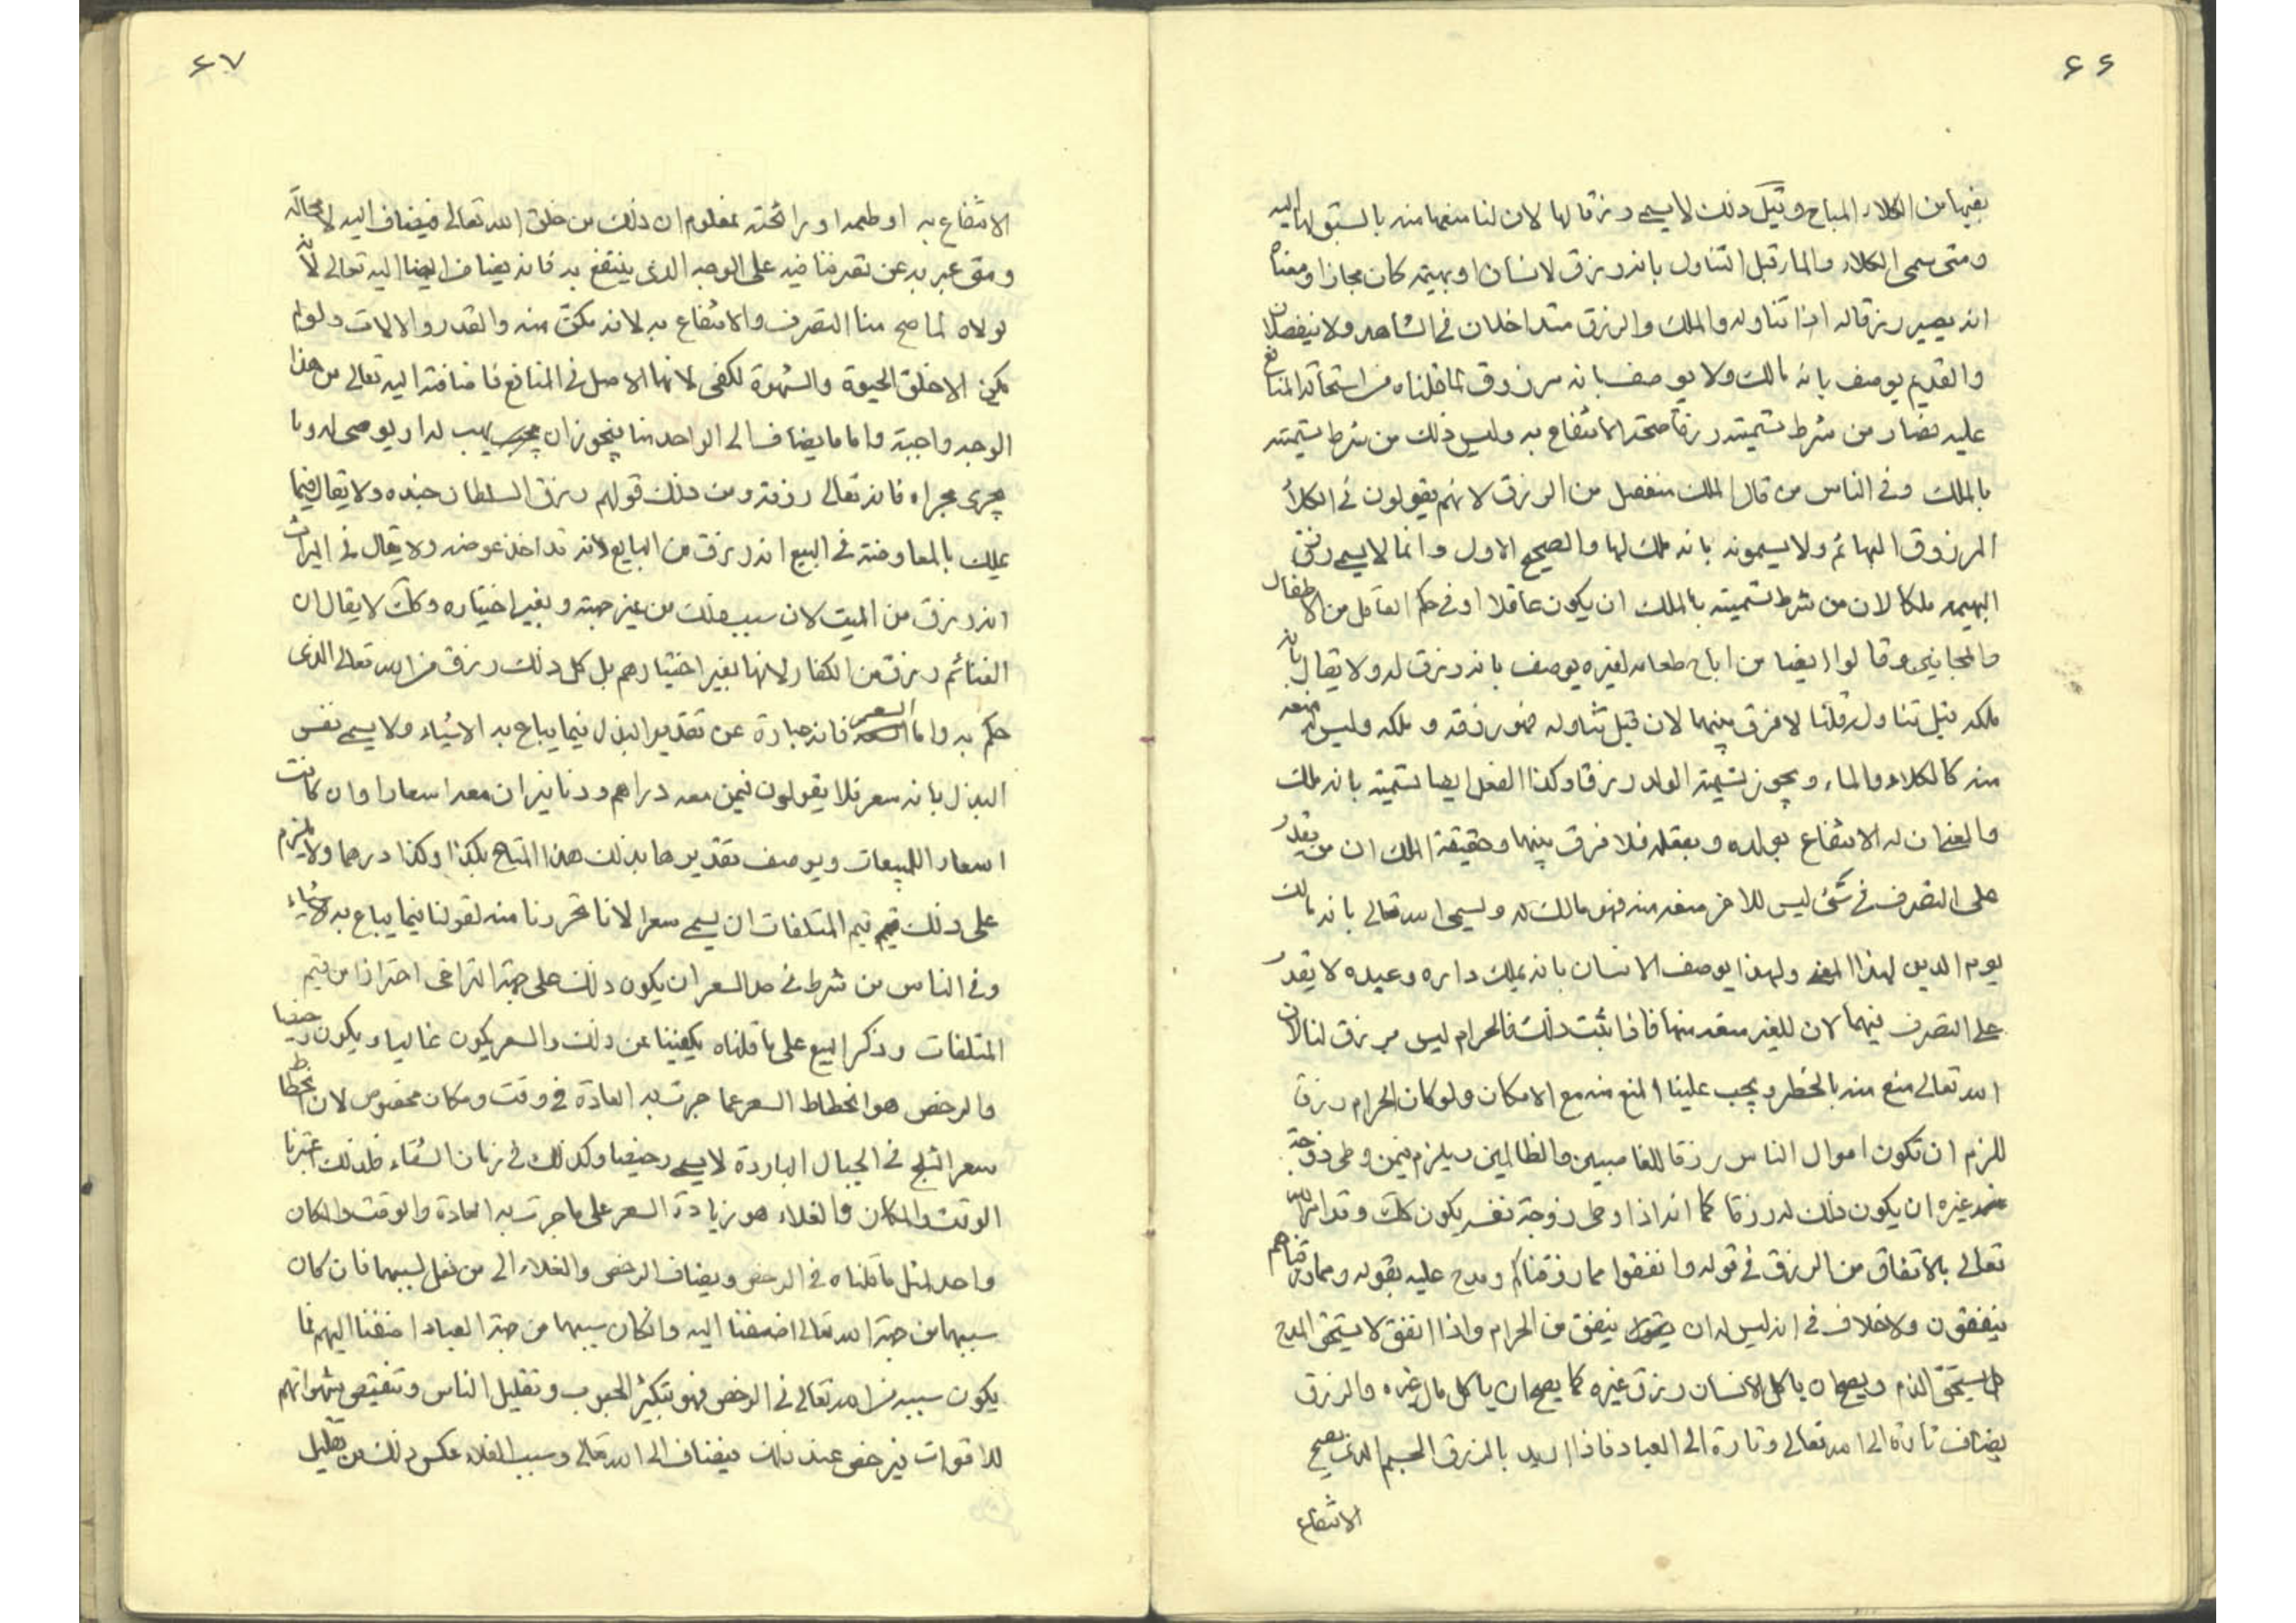 ٦٦
بفيها من الكلاء المباح وقبل ذلك لا يسمى رزقا لها لان لنا منعها منه بالسبق لها اليه
ومتى سمى الكلاء والماء قبل التناول بانه رزق لانسان او بهيمة كان مجازا ومعناه
انه يصير رزقا له اذا تناوله والملك والرزق متداخلان في الشاهد ولا ينفصلان
والقديم يوصف بانه مالك ولا يوصف بانه مرزوق لما قلناه من استحالة المنافع
عليه فصار من شرط تسميته رزقا صحة الانتفاع به وليس ذلك من شرط تسميته
بالملك وفي الناس من قال الملك منفصل من الرزق لانهم يقولون في الكلأ
المرزوق البهائم ولا يسمونه بانه ملك لها والصحيح الاول وانما لا يسمى رزق
البهيمة ملكا لان من شرط تسميته بالملك ان يكون عاقلا او في حكم العاقل من الاطفال
والمجانين وقالوا ايضا من اباح طعامه لغيره يوصف بانه رزق له ولا يقال بانه
ملكه قبل تناوله قلنا لا فرق بينهما لان قبل تناوله هو رزقه وملكه وليس له منعه
منه كالكلاء والماء ويجوز تسمية الولد رزقا وكذا العقل ايضا تسميته بانه ملك
والمعنى ان له الانتفاع بولده وبعقله فلا فرق بينهما وحقيقة الملك ان من يقدر
على التصرف في شئ ليس للاخر منعه منه فهو مالك له ويسمى الله تعالى بانه مالك
يوم الدين لهذا المعنى ولهذا يوصف الانسان بانه يملك داره وعبده لا يقدر
على التصرف فيهما لان للغير منعه منها فاذا ثبت ذلك فالحرام ليس برزق لنا لان
الله تعالى منع منه بالحظر ويجب علينا المنع منه مع الامكان ولو كان الحرام رزقا
للزم ان تكون اموال الناس رزقا للغاصبين والظالمين ويلزم فيمن وطى زوجة
غيره ان يكون ذلك له رزقا كما انه اذا وطى زوجة نفسه يكون كك وقد امر الله
تعالى بالانفاق من الرزق في قوله وانفقوا مما رزقناكم ومدح عليه بقوله ومما رزقناهم
ينفقون ولا خلاف في انه ليس له ان ينفق من الحرام واذا انفق لا يستحق المدح
بل يستحق الذم ويصح ان ياكل الانسان رزق غيره كما يصح ان ياكل مال غيره والرزق
يضاف تارة الى الله تعالى وتارة الى العباد فاذا اريد بالرزق الجسم الذي يصح
الانتفاع
٦٧
الانتفاع به او طعمه او رائحته فمعلوم ان ذلك من خلق الله تعالى فيضاف اليه لا محالة
ومتى عبر به عن تصرفنا فيه على الوجه الذي ينتفع به فانه يضاف ايضا اليه تعالى لانه
لولاه لما صح منا التصرف والانتفاع به لانه مكن منه والقدر والالات ولو لم
يكن الا خلق الحيوة والشهوة لكفى لانها الاصل في المنافع فاضافته اليه تعالى من هذا
الوجه واجبة واما ما يضاف الى الواحد منا فيجوز ان يهب له او يوصى له وما
يجرى مجراه فانه تعالى رزقه ومن ذلك قولهم رزق السلطان جنده ولا يقال فيما
يملك بالمعاوضة في البيع انه رزق من البايع لانه قد اخذ عوضه ولا يقال في الميراث
انه رزق من الميت لان سبب ذلك من غير جهته وبغير اختياره وكك لا يقال ان
الغنائم رزق من الكفار لانها بغير اختيارهم بل كل ذلك رزق من الله تعالى الذي
حكم به واما السعر فانه عبارة عن تقدير البدل فيما يباع به الاشياء ولا يسمى نفس
البدل بانه سعر فلا يقولون فيمن معه دراهم ودنانير ان معه اسعارا وان كانت
اسعار المبيعات ويوصف تقديرها بذلك هذا المتاع بكذا وكذا درهما ولا يلزم
على ذلك قيم المتلفات ان يسمى سعرا لانا تحرزنا منه لقولنا فيما يباع به الاشياء
وفي الناس من شرط في حد السعر ان يكون ذلك على جهة التراضى احترازا من قيم
المتلفات وذكر البيع على ما قلناه يكفينا عن ذلك والسعر يكون غاليا ويكون رخيصا
والرخص هو انحطاط السعر عما جرت به العادة في وقت ومكان مخصوص لان انحطاط
سعر الثلج في الجبال الباردة لا يسمى رخيصا وكذلك في زمان الشتاء فلذلك اعتبرنا
الوقت والمكان والغلاء هو زيادة السعر على ما جرت به العادة والوقت والمكان
واحد لمثل ما قلناه في الرخص ويضاف الرخص والغلاء الى من فعل سببهما فان كان
سببهما من جهة الله تعالى اضفنا اليه وان كان سببهما من جهة العباد اضفنا اليهم فما
يكون سببه من الله تعالى في الرخص فهو تكثير الحبوب وتقليل الناس وتنقيص شهواتهم
للاقوات فيرخص عند ذلك فيضاف الى الله تعالى وسبب الغلاء عكس ذلك من تقليل